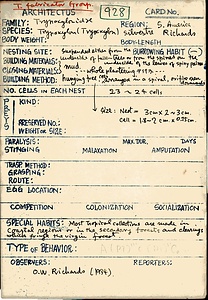 T. fabricator group.
ARCHITECTUS 928 CARD NO.
FAMILY: Trypoxylonidae REGION: S. America
SPECIES: Trypoxylon (Trypoxylon) silvestre Richards
BODY WEIGHT: BODY-LENGTH
NESTING SITE: Suspended either from the BURROWING HABIT —
BUILDING MATERIALS: of tree-fern or from the spiral on the
CLOSING MATERIALS: mud. whole plastering
BUILDING METHOD: hanging free in a spiral,
NO. CELLS IN EACH NEST 23 → 24 cells
PREYS KIND: Size: Nest =
cell =
PRESERVED NO.:
WEIGHT OR SIZE:
PARALYSIS: MAX. TUR. DAYS
STINGING MALAXATION AMPUTATION
TRASP METHOD:
GRASPING:
ROUTE:
EGG LOCATION:
COMPETITION COLONIZATION SOCIALIZATION
SPECIAL HABITS: Most tropical collections are made in
Coastal regions or in the secondary forests and clearings
which fringe the virgin forest.
TYPE OF BEHAVIOR:
OBSERVERS: REPORTERS:
O.W. Richards (1934).